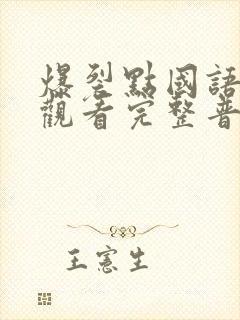 爆裂點國語
觀看完整普
王憲生